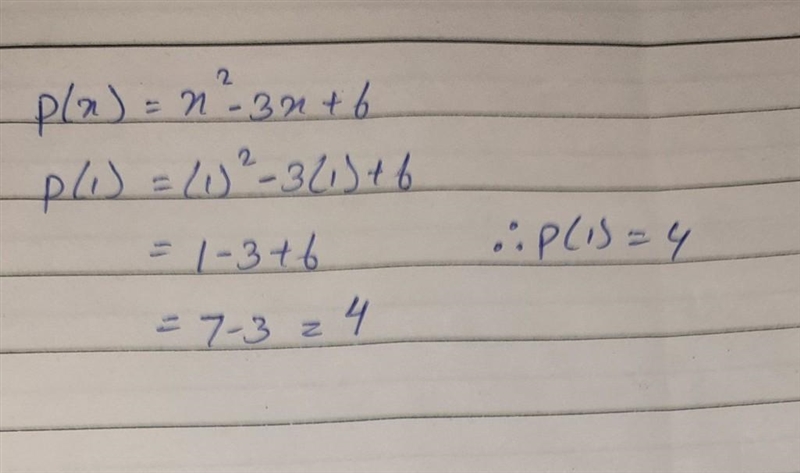 p(x) = x² - 3x + 6
p(1) = (1)² - 3(1) + 6
= 1 - 3 + 6
∴ p(1) = 4
= 7 - 3 = 4